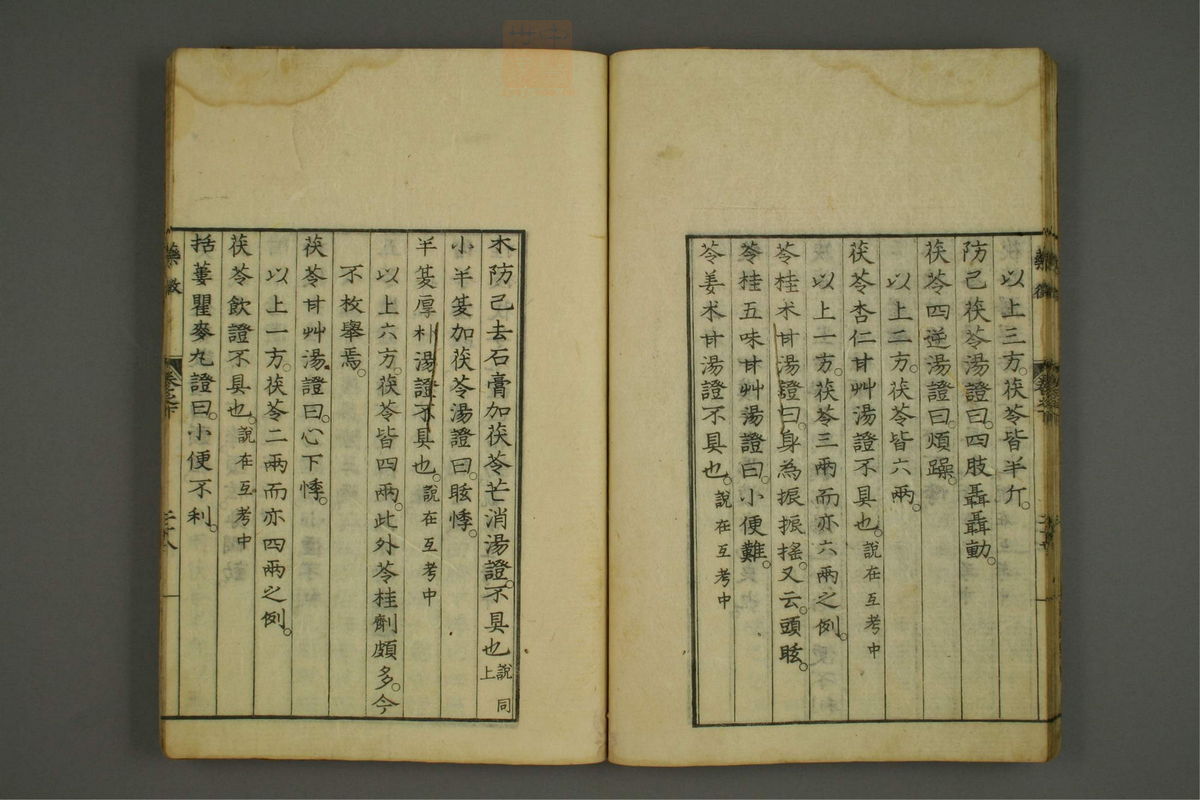 以上三方。茯苓皆半斤。
防己茯苓湯證曰。四肢聶聶動。
茯苓四逆湯證曰。煩躁。
以上二方。茯苓皆六兩。
茯苓杏仁甘艸湯證不具也。說在互考中
以上一方。茯苓三兩而亦六兩之例。
苓桂朮甘湯證曰。身為振振搖。又云。頭眩。
苓桂五味甘艸湯證曰。小便難。
苓姜朮甘湯證不具也。說在互考中
木防己去石膏加茯苓芒消湯證。不具也說同上
小半夏加茯苓湯證曰。眩悸。
半夏厚朴湯證不具也。說在互考中
以上六方。茯苓皆四兩。此外苓桂劑頗多。今
不枚舉焉。
茯苓甘艸湯證曰。心下悸。
以上一方。茯苓二兩而亦四兩之例。
茯苓飲證不具也。說在互考中
括蔞瞿麥丸證曰。小便不利。
藥徵